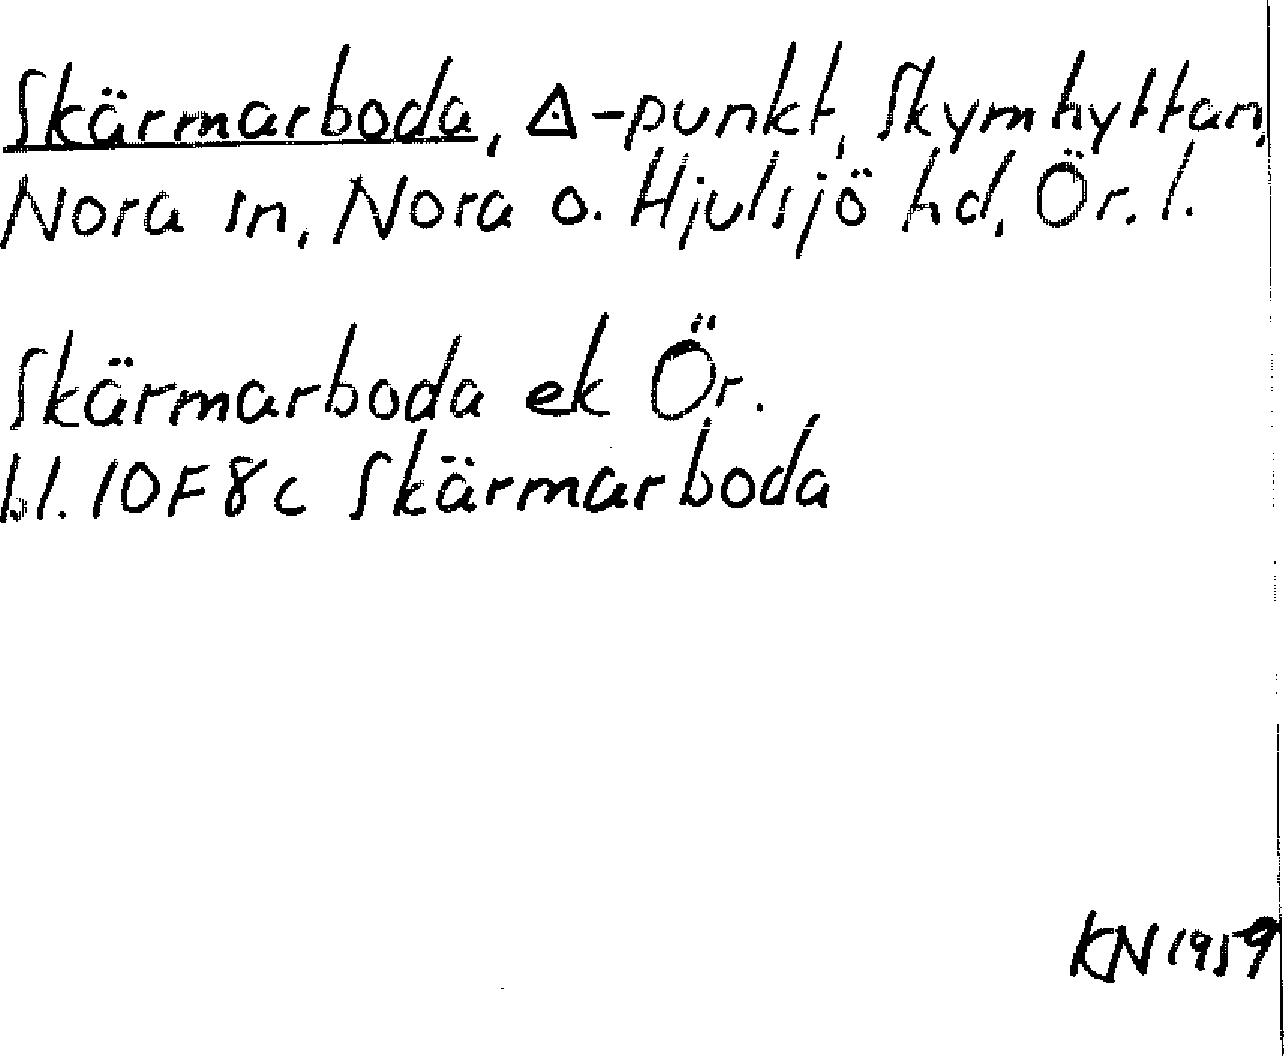 Skärmarboda, △-punkt, Skymhyttan,
Nora sn, Nora o. Hjulsjö hd, Ör. l.
Skärmarboda ek Ör.
bl. 10F8c Skärmarboda
KN 1959